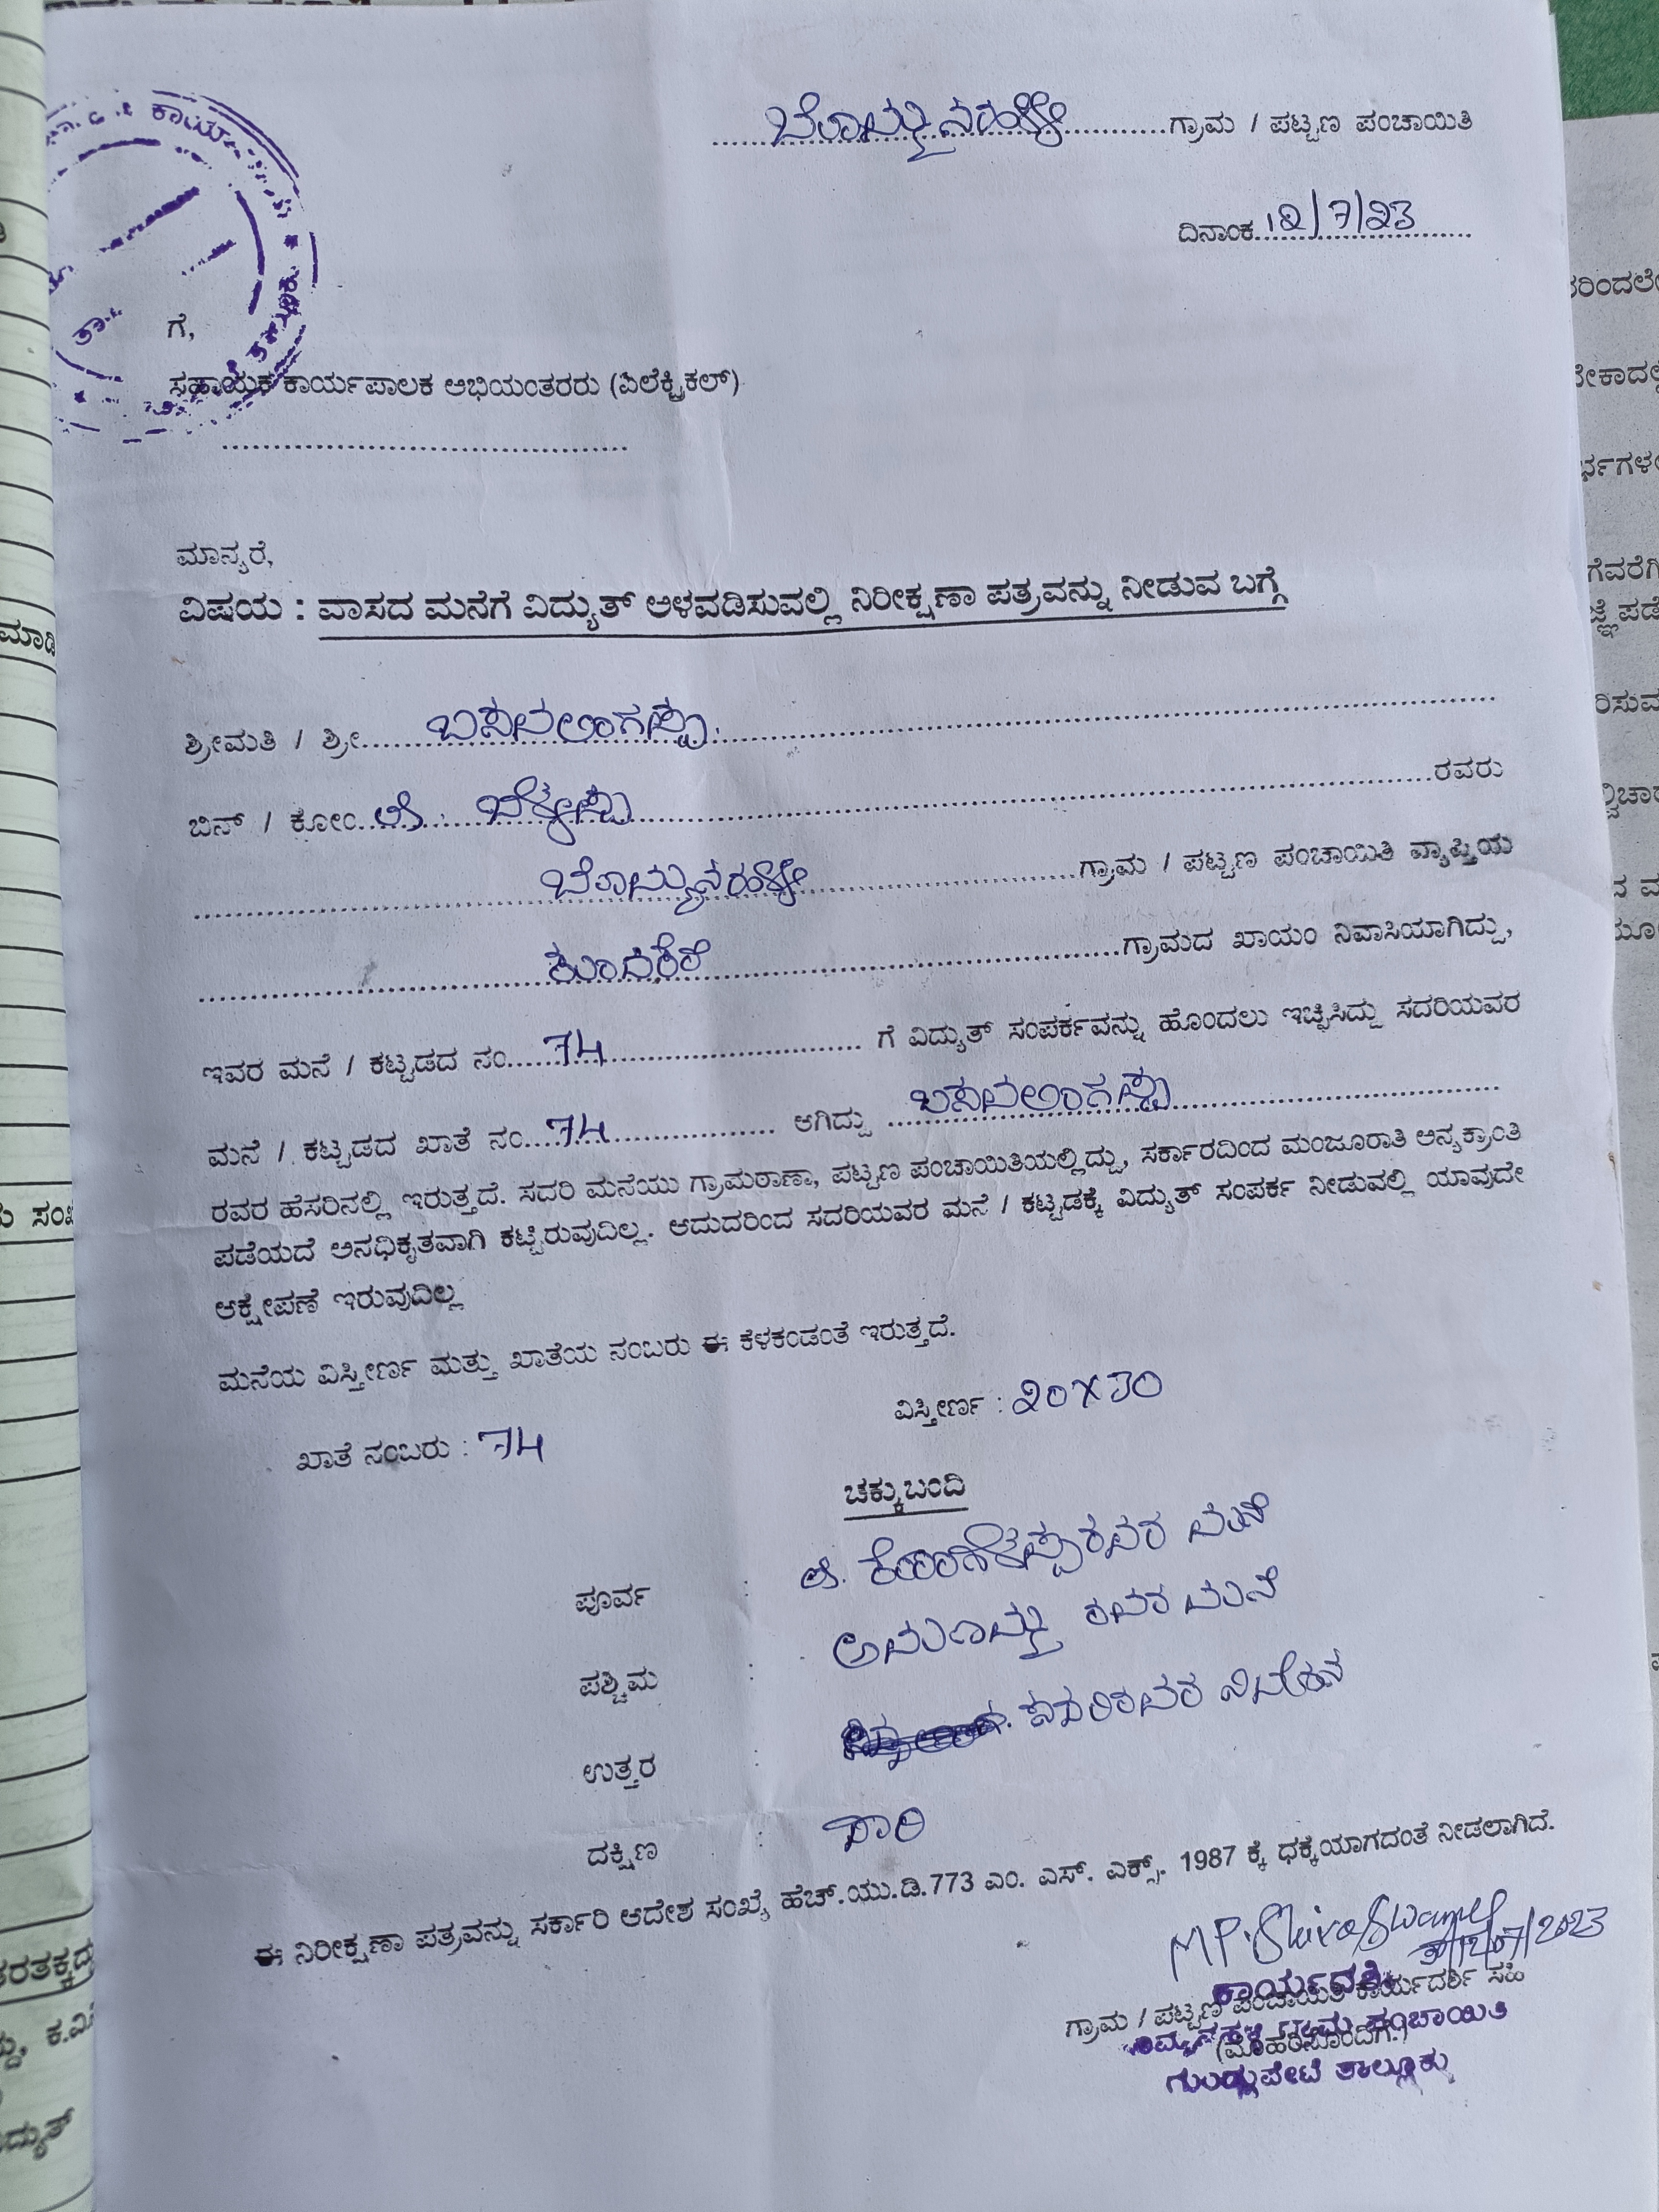 ಬೊಮ್ಮನಹಳ್ಳಿ ಗ್ರಾಮ / ಪಟ್ಟಣ ಪಂಚಾಯಿತಿ
ದಿನಾಂಕ 12/7/23
ಗೆ,
ಸಹಾಯಕ ಕಾರ್ಯಪಾಲಕ ಅಭಿಯಂತರರು (ಏಲೆಕ್ಟ್ರಿಕಲ್)
ಮಾನ್ಯರೆ,
ವಿಷಯ : ವಾಸದ ಮನೆಗೆ ವಿದ್ಯುತ್ ಅಳವಡಿಸುವಲ್ಲಿ ನಿರೀಕ್ಷಣಾ ಪತ್ರವನ್ನು ನೀಡುವ ಬಗ್ಗೆ
ಶ್ರೀಮತಿ / ಶ್ರೀ ಬಸವಲಿಂಗಪ್ಪ
ಬಿನ್ / ಕೋಂ ಲೇ. ರವರು
ಬೊಮ್ಮನಹಳ್ಳಿ ಗ್ರಾಮ / ಪಟ್ಟಣ ಪಂಚಾಯಿತಿ ವ್ಯಾಪ್ತಿಯ
ಗ್ರಾಮದ ಖಾಯಂ ನಿವಾಸಿಯಾಗಿದ್ದು,
ಇವರ ಮನೆ / ಕಟ್ಟಡದ ನಂ 74 ಗೆ ವಿದ್ಯುತ್ ಸಂಪರ್ಕವನ್ನು ಹೊಂದಲು ಇಚ್ಛಿಸಿದ್ದು ಸದರಿಯವರ
ಮನೆ / ಕಟ್ಟಡದ ಖಾತೆ ನಂ 74 ಆಗಿದ್ದು ಬಸವಲಿಂಗಪ್ಪ
ರವರ ಹೆಸರಿನಲ್ಲಿ ಇರುತ್ತದೆ. ಸದರಿ ಮನೆಯು ಗ್ರಾಮಠಾಣಾ, ಪಟ್ಟಣ ಪಂಚಾಯಿತಿಯಲ್ಲಿದ್ದು, ಸರ್ಕಾರದಿಂದ ಮಂಜೂರಾತಿ ಅನ್ಯಕ್ರಾಂತಿ
ಪಡೆಯದೆ ಅನಧಿಕೃತವಾಗಿ ಕಟ್ಟಿರುವುದಿಲ್ಲ. ಆದುದರಿಂದ ಸದರಿಯವರ ಮನೆ / ಕಟ್ಟಡಕ್ಕೆ ವಿದ್ಯುತ್ ಸಂಪರ್ಕ ನೀಡುವಲ್ಲಿ ಯಾವುದೇ
ಆಕ್ಷೇಪಣೆ ಇರುವುದಿಲ್ಲ
ಮನೆಯ ವಿಸ್ತೀರ್ಣ ಮತ್ತು ಖಾತೆಯ ನಂಬರು ಈ ಕೆಳಕಂಡಂತೆ ಇರುತ್ತದೆ.
ಖಾತೆ ನಂಬರು : 74 ವಿಸ್ತೀರ್ಣ : 20 X 30
ಚಕ್ಕುಬಂದಿ
ಪೂರ್ವ : ಲೇ. ರವರ ಮನೆ
ಪಶ್ಚಿಮ : ರವರ ಮನೆ
ಉತ್ತರ : ಸದರಿರವರ ನಿವೇಶನ
ದಕ್ಷಿಣ : ದಾರಿ
ಈ ನಿರೀಕ್ಷಣಾ ಪತ್ರವನ್ನು ಸರ್ಕಾರಿ ಆದೇಶ ಸಂಖ್ಯೆ ಹೆಚ್.ಯು.ಡಿ.773 ಎಂ. ಎಸ್. ಎಕ್ಸ್. 1987 ಕ್ಕೆ ಧಕ್ಕೆಯಾಗದಂತೆ ನೀಡಲಾಗಿದೆ.
M P. Shivaswamy
12/07/2023
ಕಾರ್ಯದರ್ಶಿ
ಗ್ರಾಮ / ಪಟ್ಟಣ ಪಂಚಾಯಿತಿ ಕಾರ್ಯದರ್ಶಿ ಸಹಿ
ಬೊಮ್ಮನಹಳ್ಳಿ ಗ್ರಾಮ ಪಂಚಾಯಿತಿ
(ಮೊಹರಿನೊಂದಿಗೆ.)
ಗುಂಡ್ಲುಪೇಟೆ ತಾಲ್ಲೂಕು